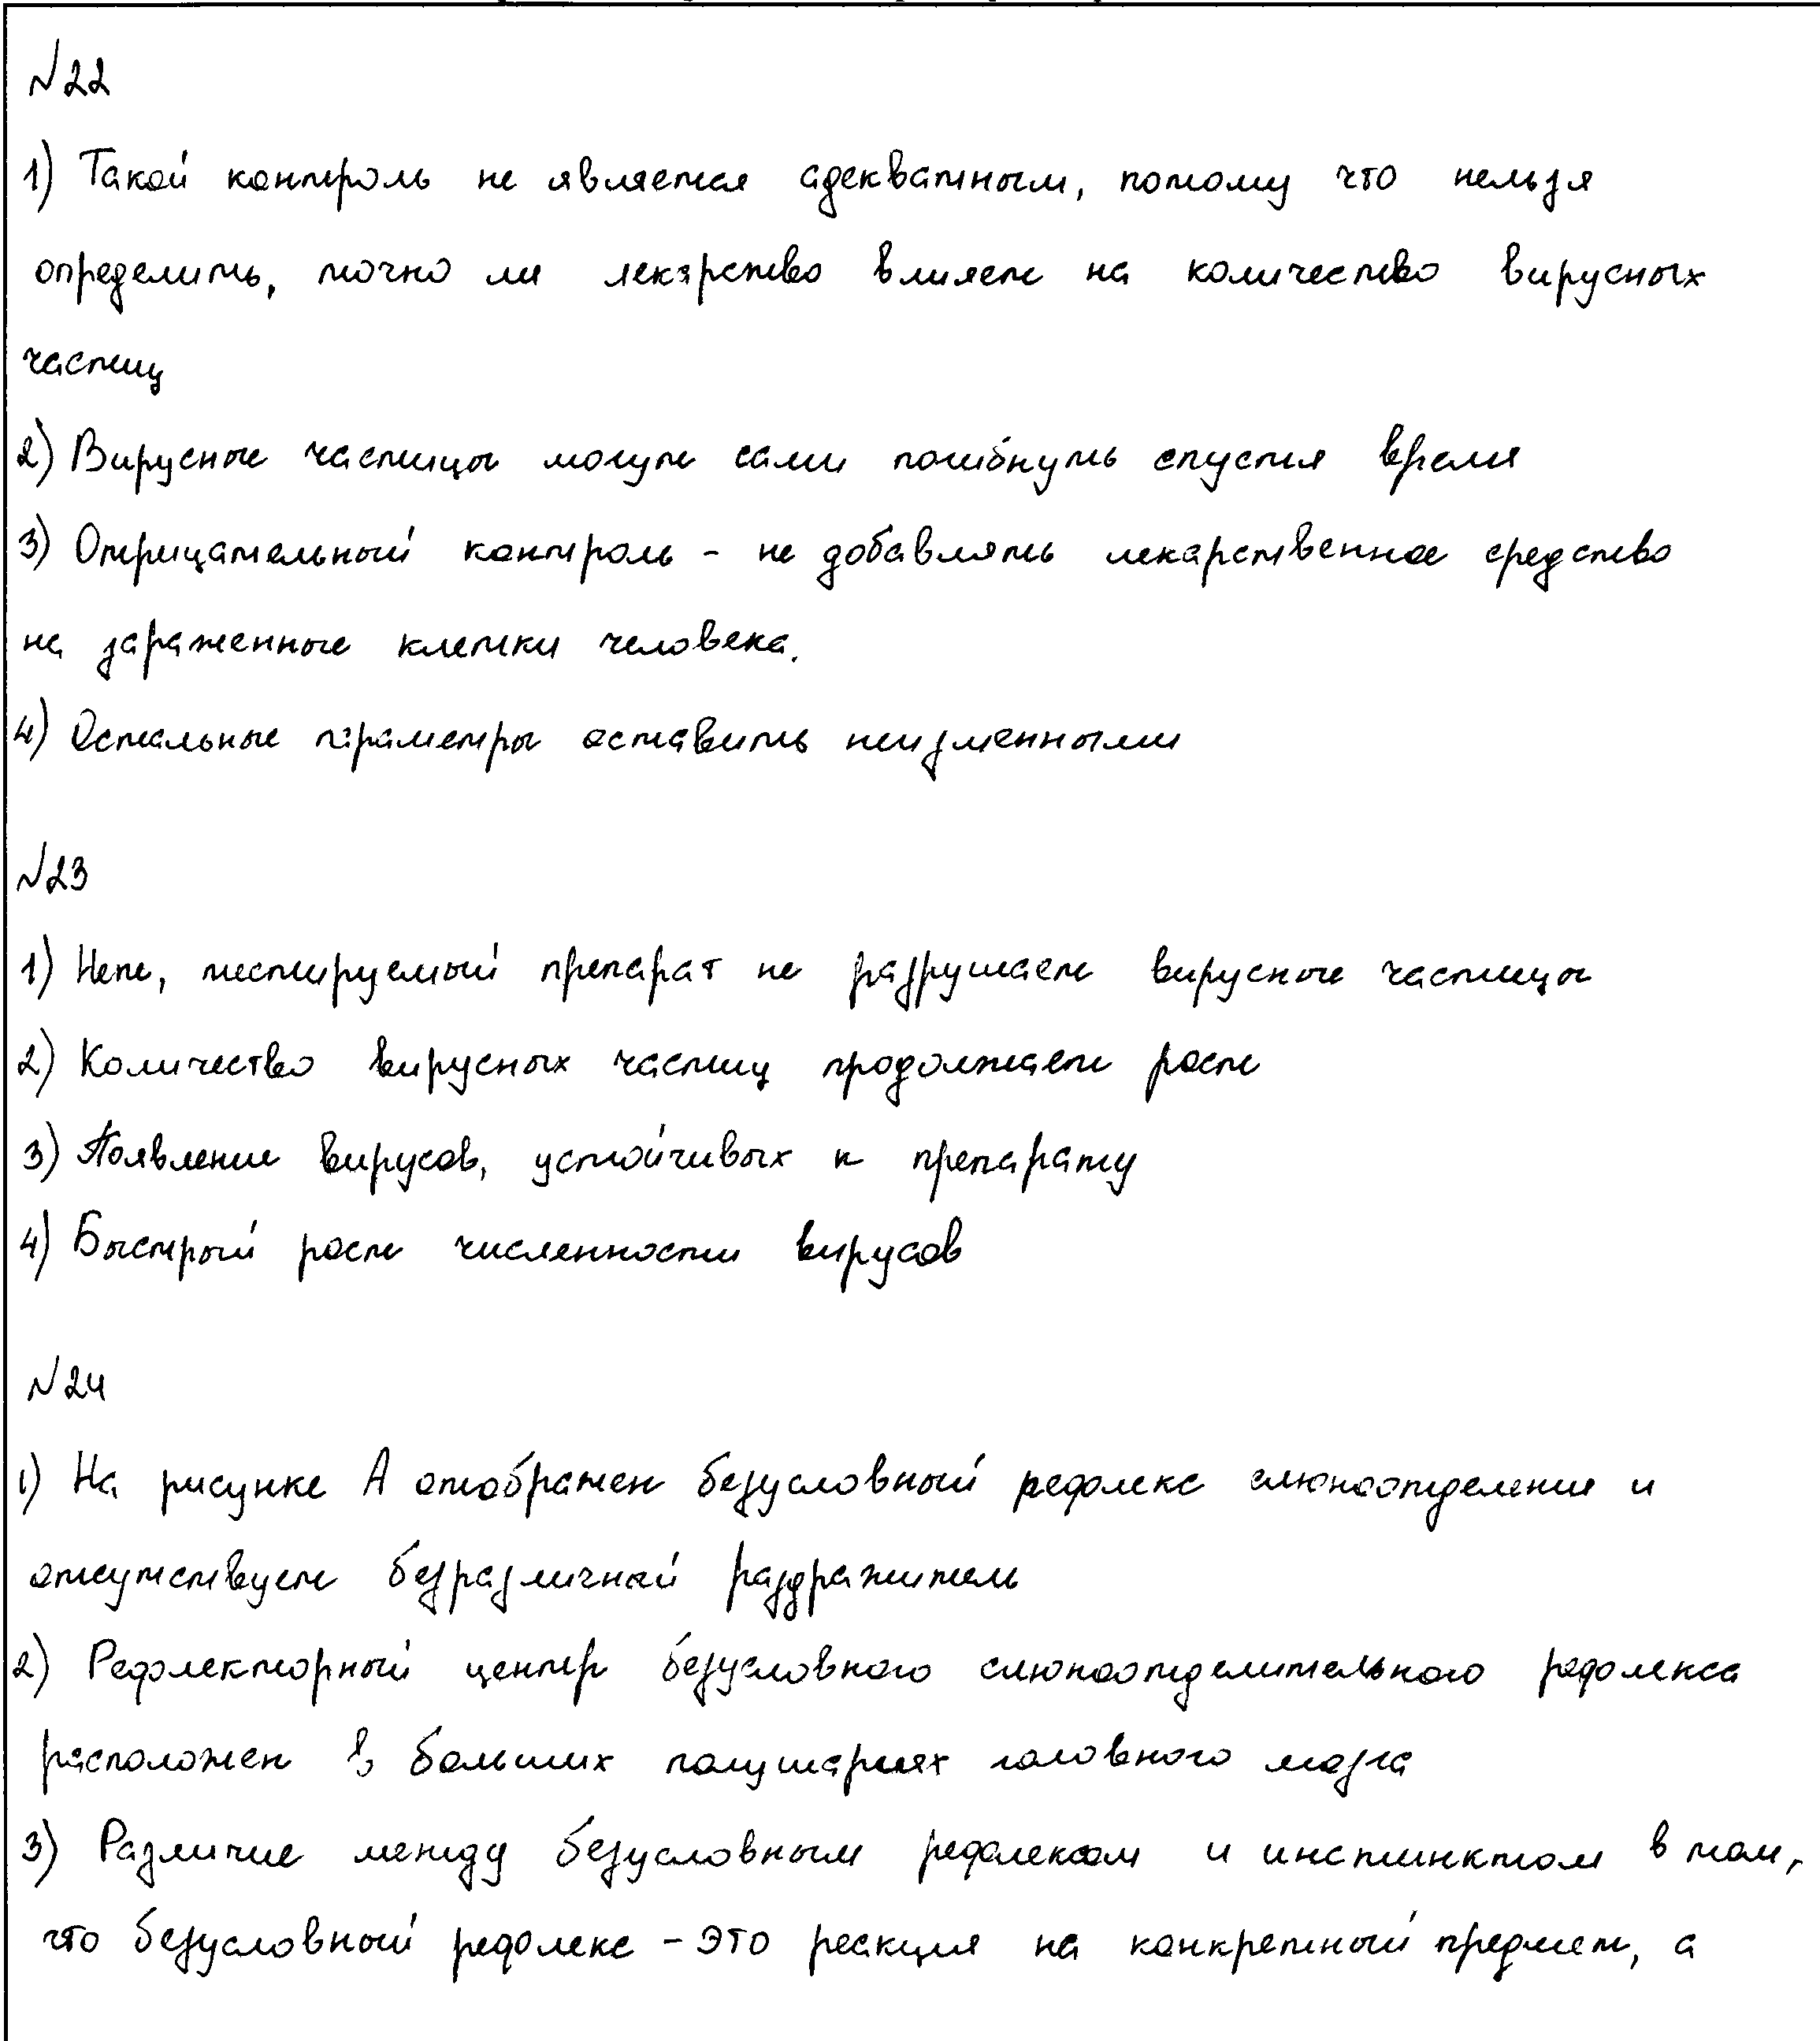 №22
1) Такой контроль не является адекватным, потому что нельзя
определить, точно ли лекарство влияет на количество вирусных
частиц
2) Вирусные частицы могут сами погибнуть спустя время
3) Отрицательный контроль - не добавлять лекарственное средство
на зараженные клетки человека.
4) Остальные параметры оставить неизменными
№23
1) Нет, тестируемый препарат не разрушает вирусные частицы
2) Количество вирусных частиц продолжает расти
3) Появление вирусов, устойчивых к препарату
4) Быстрый рост численности вирусов
№24
1) На рисунке А отображен безусловный рефлекс слюноотделения и
отсутствует безразличный раздражитель
2) Рефлекторный центр безусловного слюноотделительного рефлекса
расположен в больших полушариях головного мозга
3) Различие между безусловным рефлексом и инстинктом в том,
что безусловный рефлекс - это реакция на конкретный предмет, а